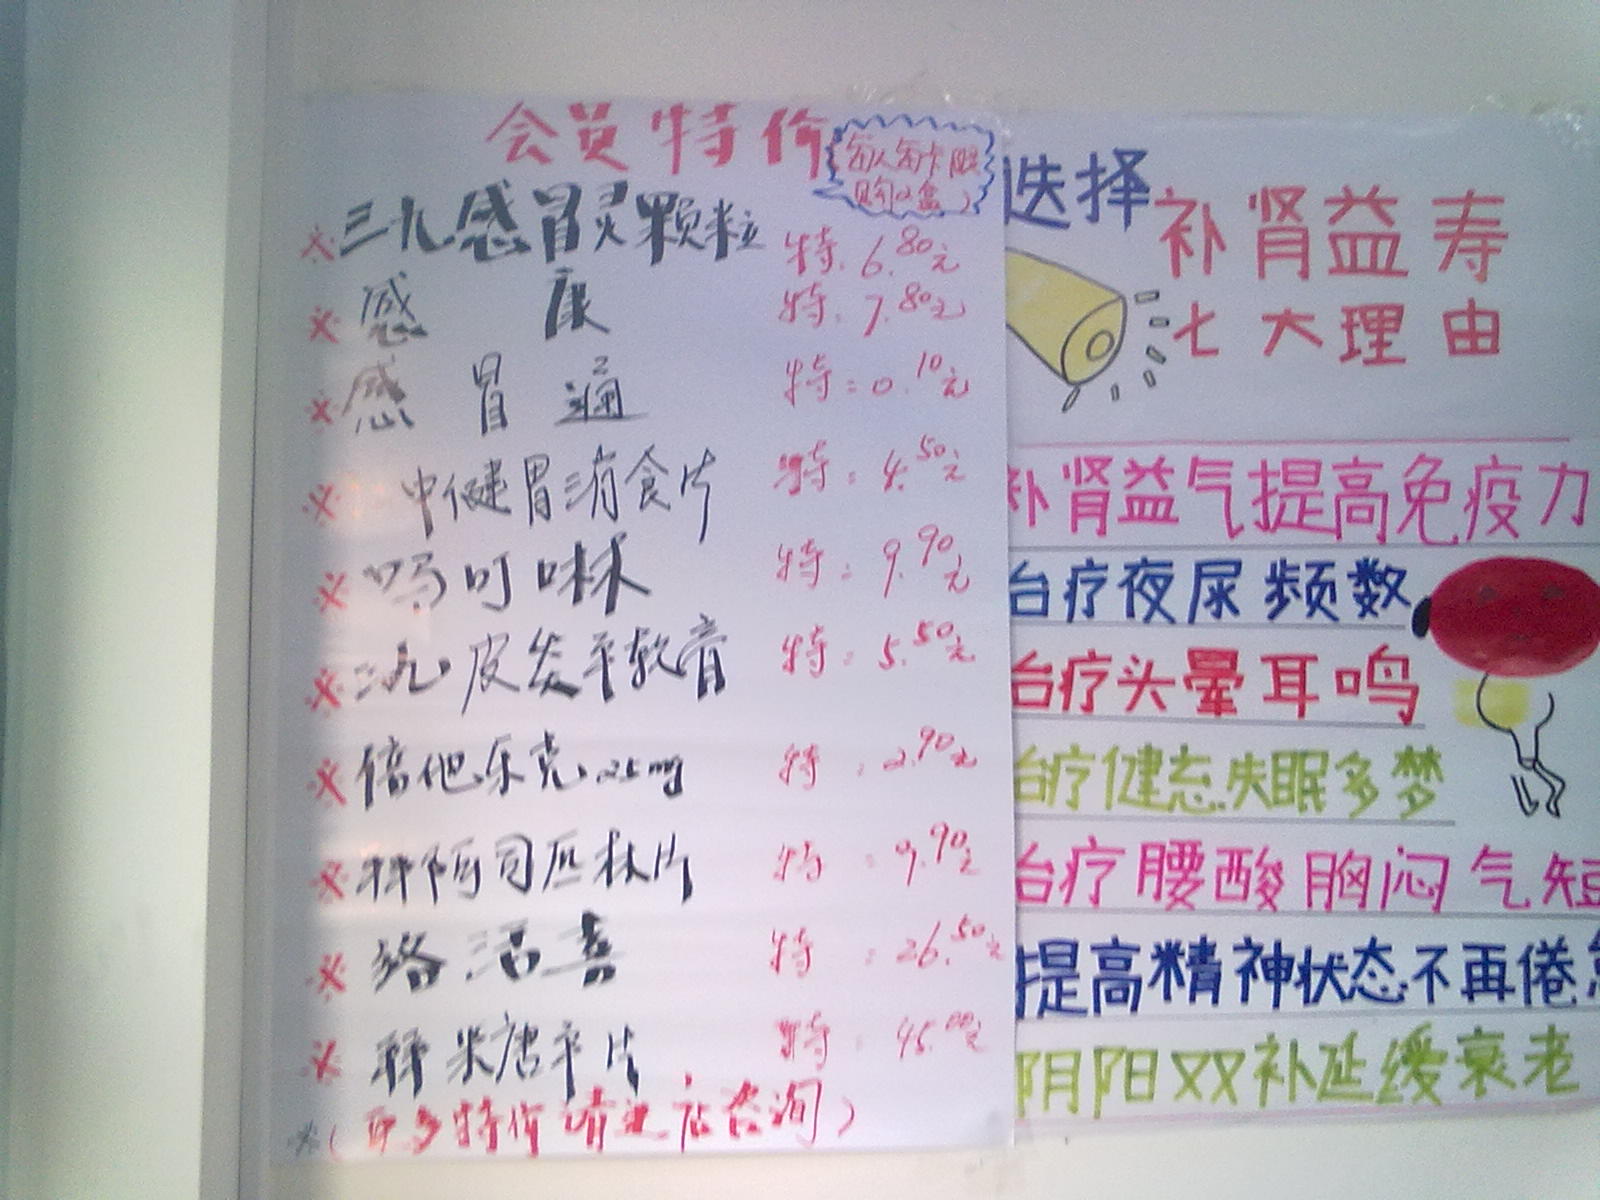 会员特价
每人每卡限
购2盒
※三九感冒灵颗粒 特:6.80元
※感 康 特:7.80元
※感冒通 特:0.10元
※ 中健胃消食片 特:4.50元
※吗叮啉 特:9.90元
※三九皮炎平软膏 特:5.50元
※倍他乐克 25mg 特:2.90元
※拜阿司匹林片 特:9.90元
※络活喜 特:26.50元
※拜糖平片 特:45.00元
※(更多特价请进店咨询)
选择
补肾益寿
七大理由
补肾益气提高免疫力
治疗夜尿频数
治疗头晕耳鸣
治疗健忘失眠多梦
治疗腰酸胸闷气短
提高精神状态不再倦
阴阳双补延缓衰老